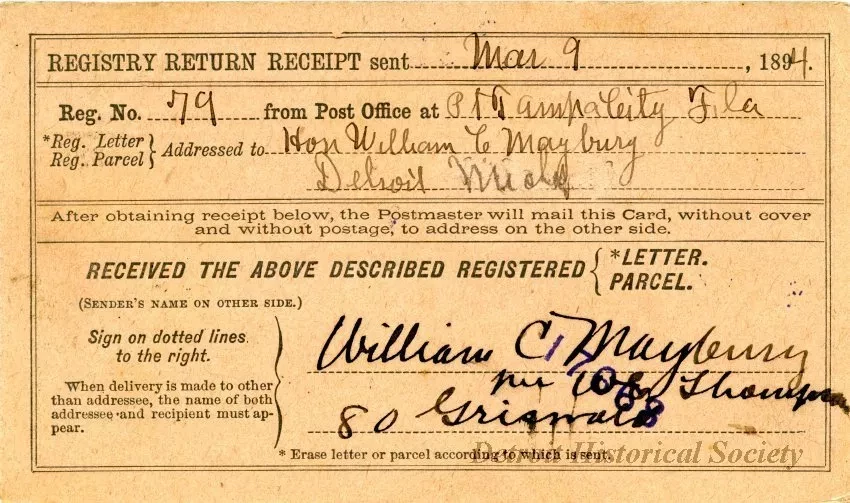 REGISTRY RETURN RECEIPT sent Mar 9, 1894.
Reg. No. 79 from Post Office at Pt Tampa City Fla
*Reg. Letter
Reg. Parcel } Addressed to Hon William C Maybury
Detroit Mich
After obtaining receipt below, the Postmaster will mail this Card, without cover
and without postage, to address on the other side.
RECEIVED THE ABOVE DESCRIBED REGISTERED { *LETTER.
PARCEL.
(SENDER'S NAME ON OTHER SIDE.)
Sign on dotted lines
to the right.
When delivery is made to other
than addressee, the name of both
addressee and recipient must ap-
pear.
William C Maybury
per Thompson
80 Griswold
* Erase letter or parcel according to which is sent.
Detroit Historical Society